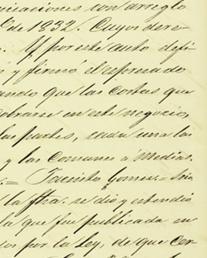 nicaciones con arreglo
de 1832. Cuyos dere
Y por este auto defi
y firmó el espresado
ando que las costas que
cobrarse en este negocio,
las partes, cada una las
y las Comunes a medias.
= Jacinto Gomez =
la fha. se dio y estendió
la que fue publicada en
por la Ley, de que cer